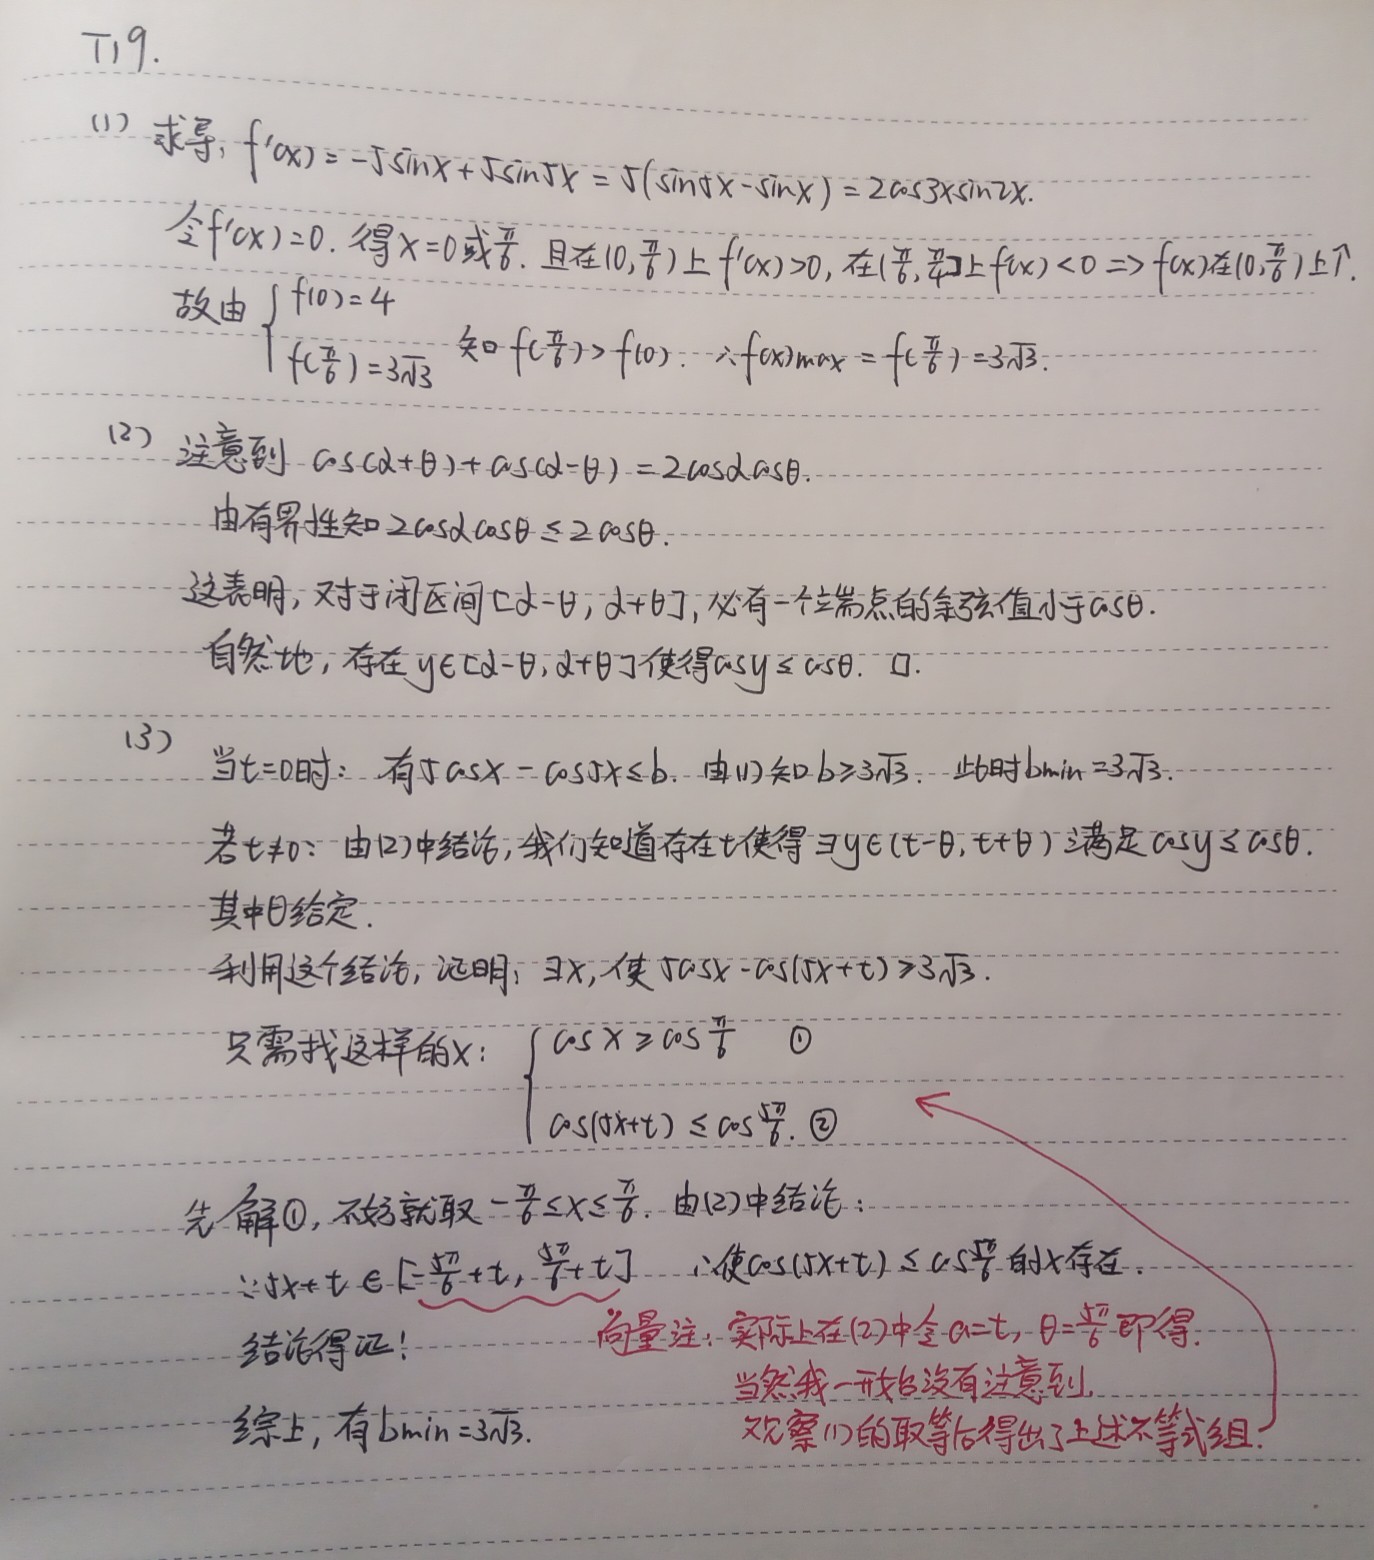 T19.
(1) 求导, f'(x) = -5sinx + 5sin5x = 5(sin5x - sinx) = 2cos3xsin2x.
令f'(x)=0. 得x=0或π/6. 且在(0, π/6)上f'(x)>0, 在(π/6, π/4]上f'(x)<0 => f(x)在(0, π/6)上↑.
故由 { f(0)=4
f(π/6)=3√3 知 f(π/6) > f(0). ∴f(x)max = f(π/6) = 3√3.
(2) 注意到 cos(α+θ)+cos(α-θ) = 2cosαcosθ.
由有界性知 2cosαcosθ ≤ 2cosθ.
这表明, 对于闭区间[α-θ, α+θ], 必有一个端点的余弦值小于cosθ.
自然地, 存在 y∈[α-θ, α+θ]使得cosy ≤ cosθ. □.
(3) 当t=0时: 有5cosx - cos5x ≤ b. 由(1)知 b≥3√3. 此时bmin=3√3.
若t≠0: 由(2)中结论, 我们知道存在t使得∃y∈(t-θ, t+θ)满足cosy ≤ cosθ.
其中θ给定.
利用这个结论, 证明: ∃x, 使 5cosx - cos(5x+t) ≥ 3√3.
只需找这样的x: { cosx ≥ cosπ/6 ①
cos(5x+t) ≤ cos5π/6. ②
先解①, 不妨就取 -π/6 ≤ x ≤ π/6. 由(2)中结论:
∵5x+t ∈ [-5π/6+t, 5π/6+t] ∴使cos(5x+t) ≤ cos5π/6的x存在.
结论得证!
尚量注: 实际上在(2)中令a=t, θ=5π/6即得.
当然我一开始没有注意到,
观察(1)的取等后得出了上述不等式组.
综上, 有bmin=3√3.